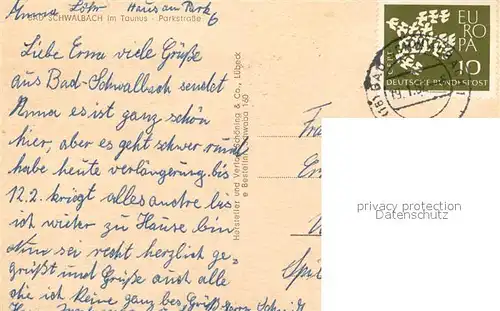 Anna Löhr Haus am Park 6
BAD SCHWALBACH im Taunus - Parkstraße
Liebe Erna viele Grüße
aus Bad-Schwalbach sendet
Anna es ist ganz schön
hier, aber es geht schwer rund
habe heute verlängerung bis
12.2. kriegt alles andre bis
ich wieder zu Hause bin
Nun sei recht herzlich ge-
grüßt und Grüße auch alle
die ich kenne ganz bes Grüß
Hersteller und Verlag Schöning & Co., Lübeck
Bestellnr. Schwaba 160
EUROPA
10
DEUTSCHE BUNDESPOST
privacy protection
Datenschutz